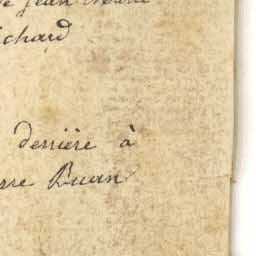 Jean Marie
ichard
derrière à
rre Buan